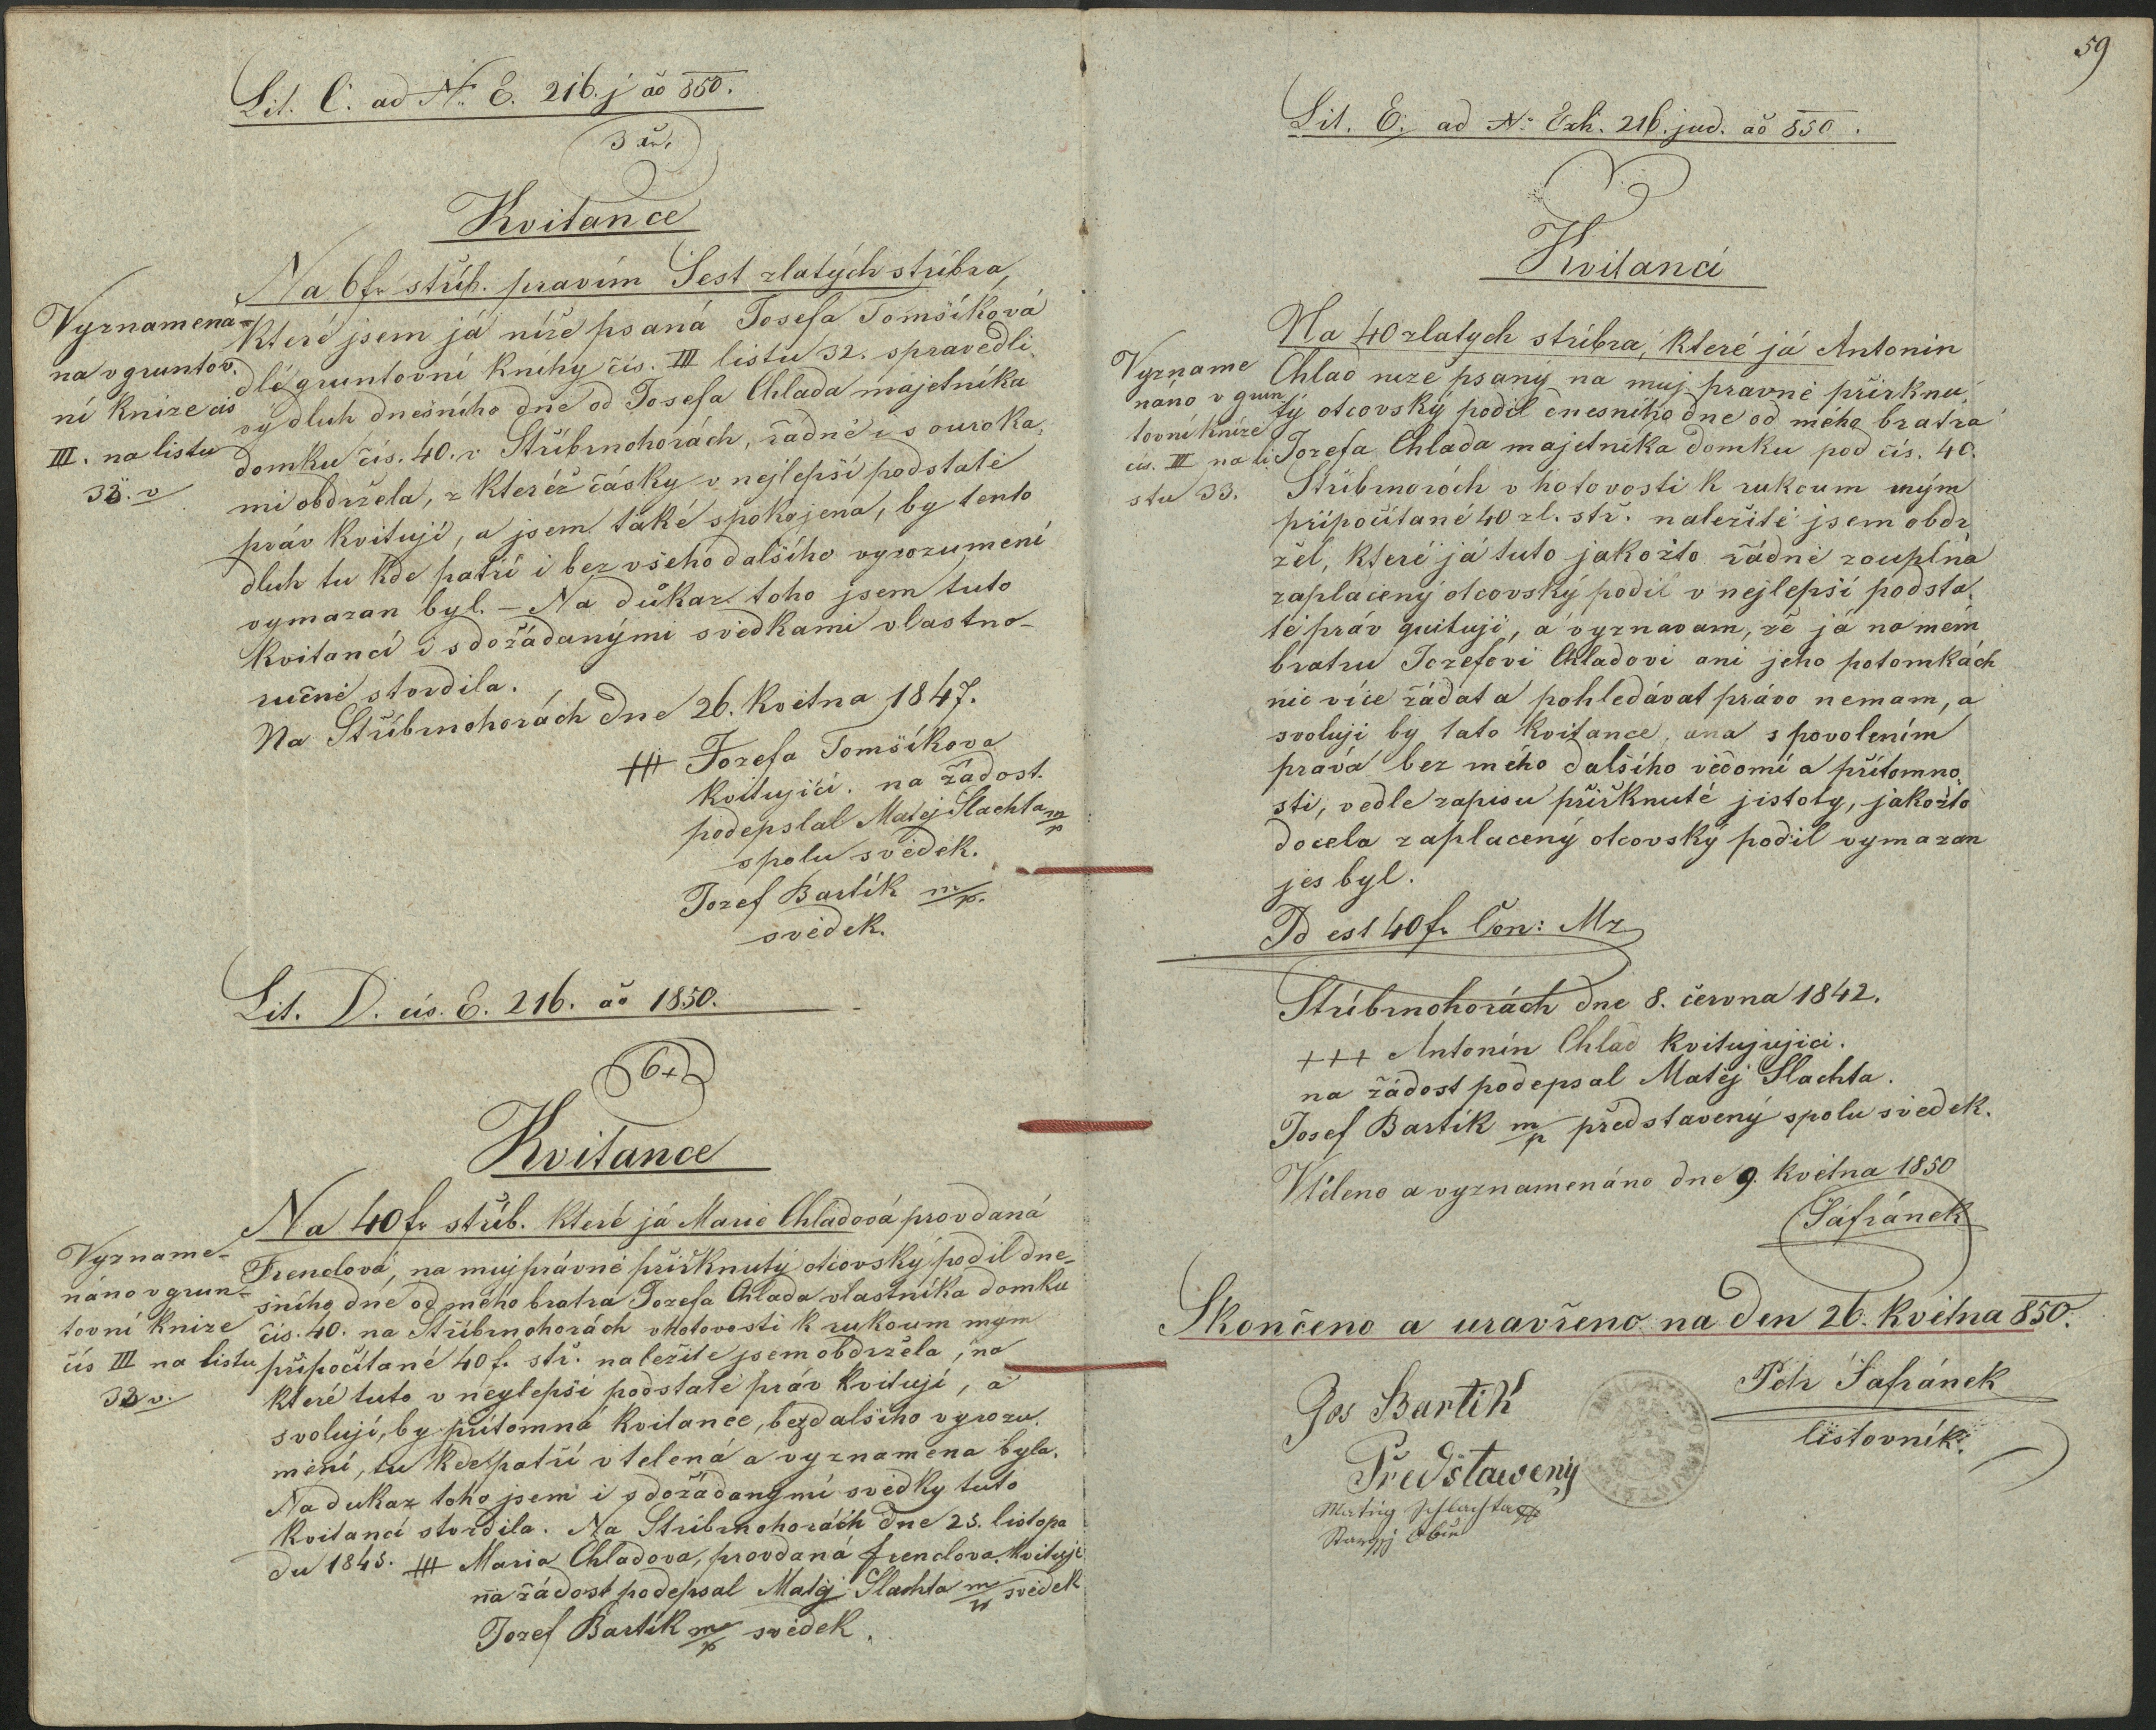 Lit. C. ad N: E. 216. j ao 850.
3 xr.
Kvitance
Na 6 fr stříb. pravím Šest zlatých stříbra,
které jsem já níže psaná Josefa Tomšíková
dlé gruntovní knihy čís. III listu 32. spravedli-
vý dluh dnešního dne od Josefa Chlada majetníka
domku čís. 40. v Stříbrnohorách, řádně i s ouroka-
mi obdržela, z kteréž částky v nejlepší podstatě
práv kvituji, a jsem také spokojena, by tento
dluh tu kde patří i bez všeho dalšího vyrozumění
vymazan byl. – Na důkaz toho jsem tuto
kvitancí i s dožádanými svědkami vlastno-
ručně stvrdila.
Na Stříbrnohorách dne 26. května 1847.
+++ Jozefa Tomšíkova
kvitující. na žádost.
podepslal Matěj Šlachta m/p
spolu svědek.
Jozef Bartík m/p.
svědek.
Vyznamena-
na v gruntov-
ní knize čís
III. na listu
32. v
Lit. D. čís. E. 216. ao 1850.
6 x
Kvitance
Na 40 fr stříb. které já Marie Chladová provdaná
Frendlová, na muj právně přiřknutý otcovský podil dne-
šního dne od mého bratra Jozefa Chlada vlastníka domku
čís. 40. na Stříbrnohorách v hotovosti k rukoum mym
připočítané 40 f. stř. naležitě jsem obdržela, na
které tuto v nejlepší podstatě práv kvituji, a
svoluji, by přítomná kvitance, bez dalšího vyrozu-
mění, tu kde patří vtelená a vyznamena byla.
Na dukaz toho jsem i s dožádanými svědky tuto
kvitancí stvrdila. Na Stříbrnohorách dne 25. listopa
du 1845. +++ Maria Chladova, provdaná frendlova, kvituji
na žádost podepsal Matěj Šlachta m/p svědek
Jozef Bartík m/p svědek.
Vyzname-
náno v grun-
tovní knize
čís III na listu
32 v.
59
Lit. E. ad N: Exh. 216. jud. ao 850.
Kvitancí
Na 40 zlatych stříbra, které já Antonin
Chlad níže psaný na muj pravně přiřknu-
tý otcovský podíl dnešního dne od mého bratra
Jozefa Chlada majetníka domku pod čís. 40.
Stříbrnorách v hotovosti k rukoum mým
připočítané 40 zl. stř. naležitě jsem obdr
žel, které já tuto jakožto řádně zouplna
zaplacený otcovský podíl v nejlepší podsta-
tě práv quituji, a vyznavam, že já na mém
bratru Jozefovi Chladovi ani jeho potomkách
nic více žádat a pohledávat právo nemam, a
svoluji by tato kvitance, ana s povolením
práva bez mého dalšího vědomí a přítomno-
sti, vedle zapisu přiřknuté jistoty, jakožto
docela zaplacený otcovský podíl vymazan
jes byl.
Id est 40 f. Con: Mz
Stříbrnohorách dne 8. června 1842.
+++ Antonín Chlad kvitujujici.
na žádost podepsal Matěj Šlachta.
Josef Bartík m/p představený spolu svědek.
Vtěleno a vyznamenáno dne 9. května 1850
Šafránek
Vyzname
náno v grun
tovní knize
čís. III na li-
stu 33.
Skončeno a uzavřeno na den 26. května 850.
Jos Bartik
Předstawený
Petr Šafránek
listovník.